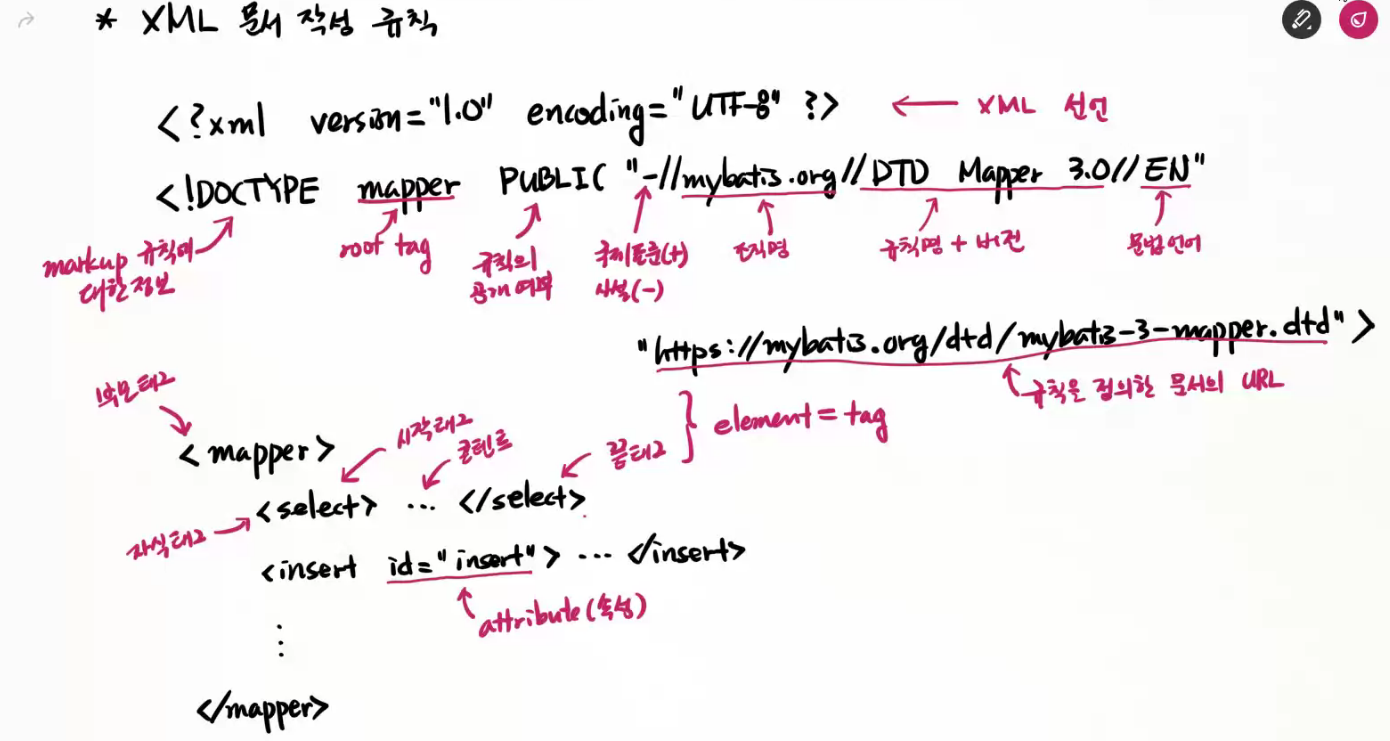 * XML 문서 작성 규칙
<?xml version="1.0" encoding="UTF-8" ?> ← XML 선언
<!DOCTYPE mapper PUBLIC "-//mybatis.org//DTD Mapper 3.0//EN"
markup 규칙에 대한 정보
root tag
규칙의 공개 여부
국제표준(+) 사설(-)
조직명
규칙명 + 버전
문법 언어
"https://mybatis.org/dtd/mybatis-3-mapper.dtd">
규칙을 정의한 문서의 URL
부모태그
<mapper>
시작태그
콘텐트
끝태그
element = tag
<select> ... </select>
자식태그
<insert id="insert"> ... </insert>
attribute (속성)
⋮
</mapper>